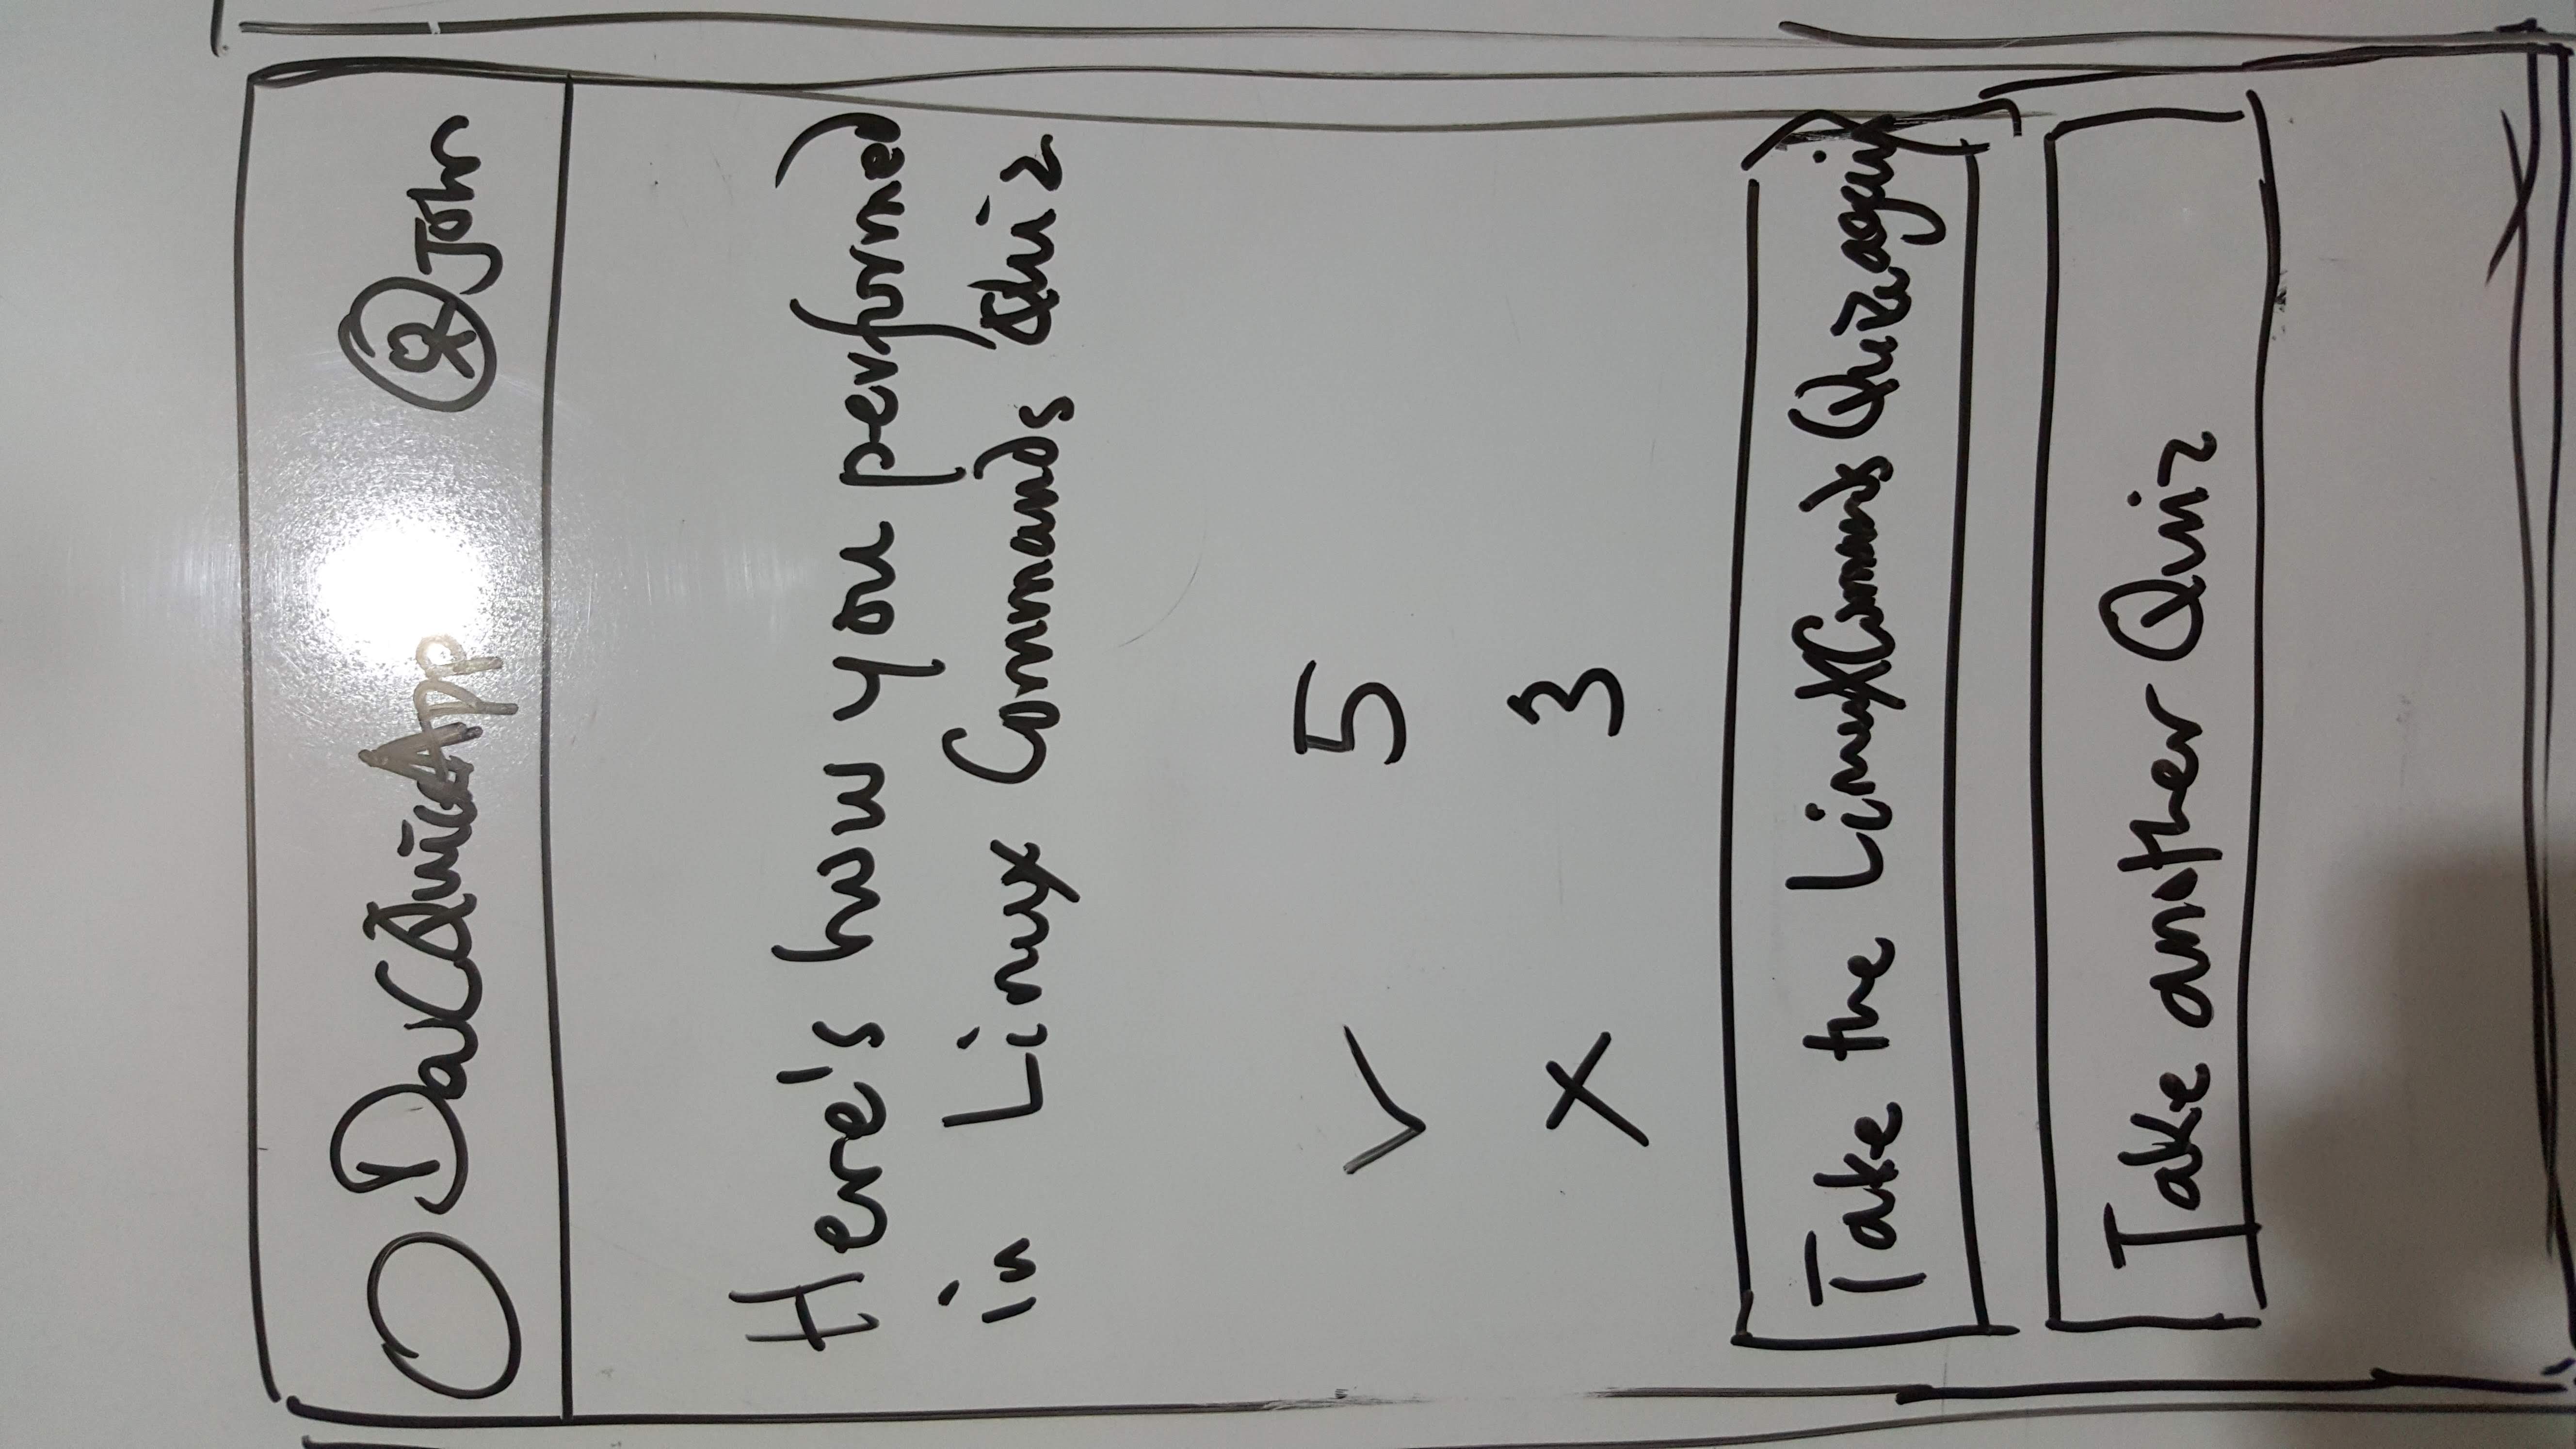 DavCQuizApp John
Here's how you performed
in Linux Commands Quiz
✓ 5
X 3
Take the Linux Commands Quiz again
Take another Quiz